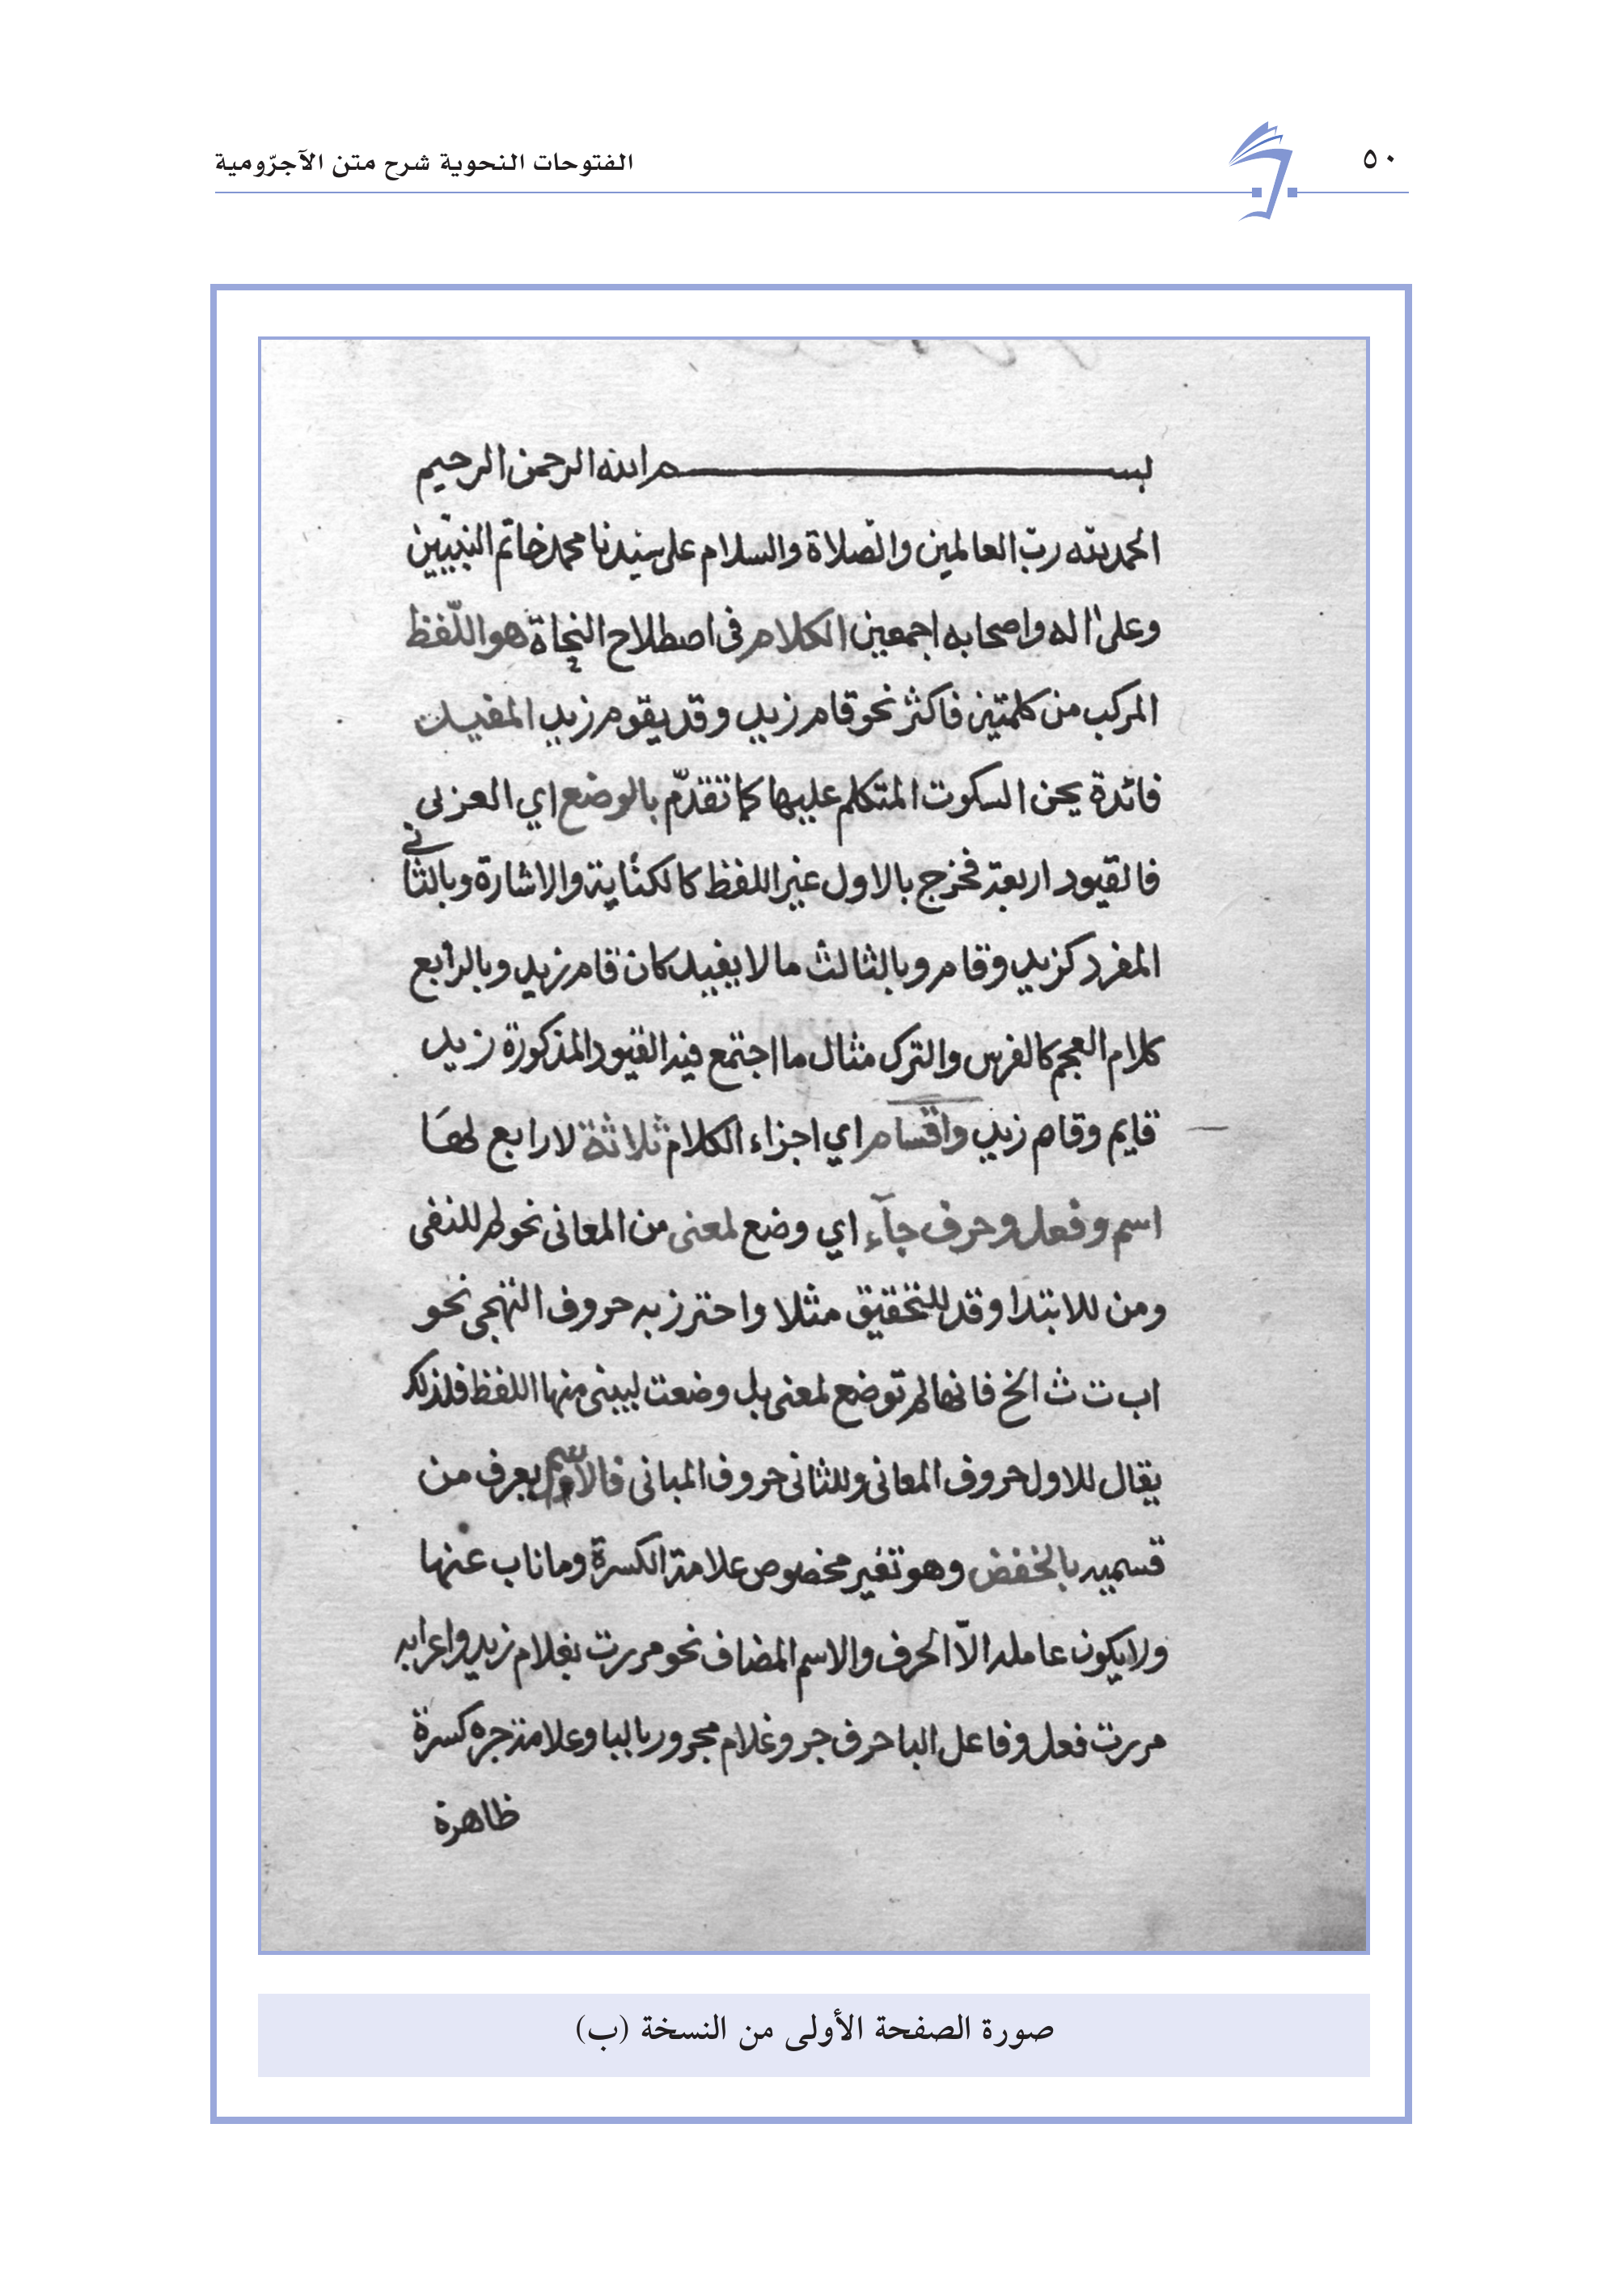 ٥٠
الفتوحات النحوية شرح متن الآجرّومية
بسم الله الرحمن الرحيم
الحمد لله ربّ العالمين والصّلاة والسلام على سيّدنا محمد خاتم النبيّين
وعلى اله واصحابه اجمعين الكلام في اصطلاح النحاة هو اللّفظ
المركب من كلمتين فاكثر نحو قام زيد وقد يقوم زيد المفيد
فائدة يحن السكوت المتكلم عليها كما تقدّم بالوضع اي العزبى
فالقيود اربعة فخرج بالاول غير اللفظ كالكناية والاشارة وبالثانى
المفرد كزيد وقام وبالثالث ما لا يفيد كان قام زيد وبالرابع
كلام العجم كالفرس والترك مثال ما اجتمع فيه القيود المذكورة زيد
قايم وقام زيد واقسام اي اجزاء الكلام ثلاثة لا رابع لها
اسم وفعل وحرف جآء اي وضع لمعنى من المعانى نحو لم للنفى
ومن للابتدا وقد للتحقيق مثلا واحترز به حروف التهجى نحو
ا ب ت ث الخ فانها لم توضع لمعنى بل وضعت ليبنى منها اللفظ فلذلك
يقال للاول حروف المعانى وللثانى حروف المبانى فالاسم يعرف من
قسميه بالخفض وهو تغير مخصوص علامة الكسرة وما ناب عنها
ولا يكون عامله الّا الحرف والاسم المضاف نحو مررت بغلام زيد واعرابه
مررت فعل وفاعل البا حرف جر وغلام مجرور بالبا وعلامة جره كسرة
ظاهرة
صورة الصفحة الأولى من النسخة (ب)